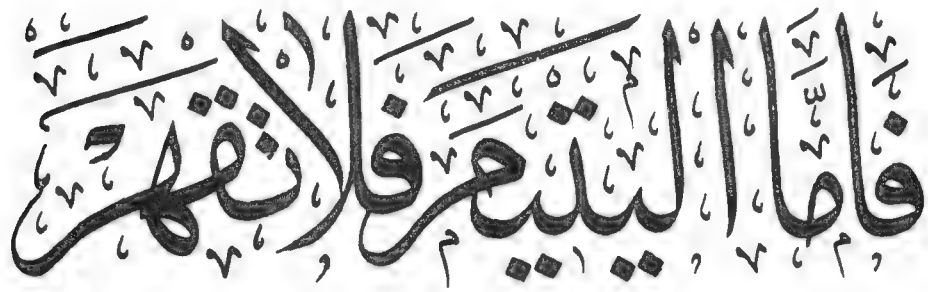 فَأَمَّا الْيَتِيمَ فَلَا تَقْهَرْ